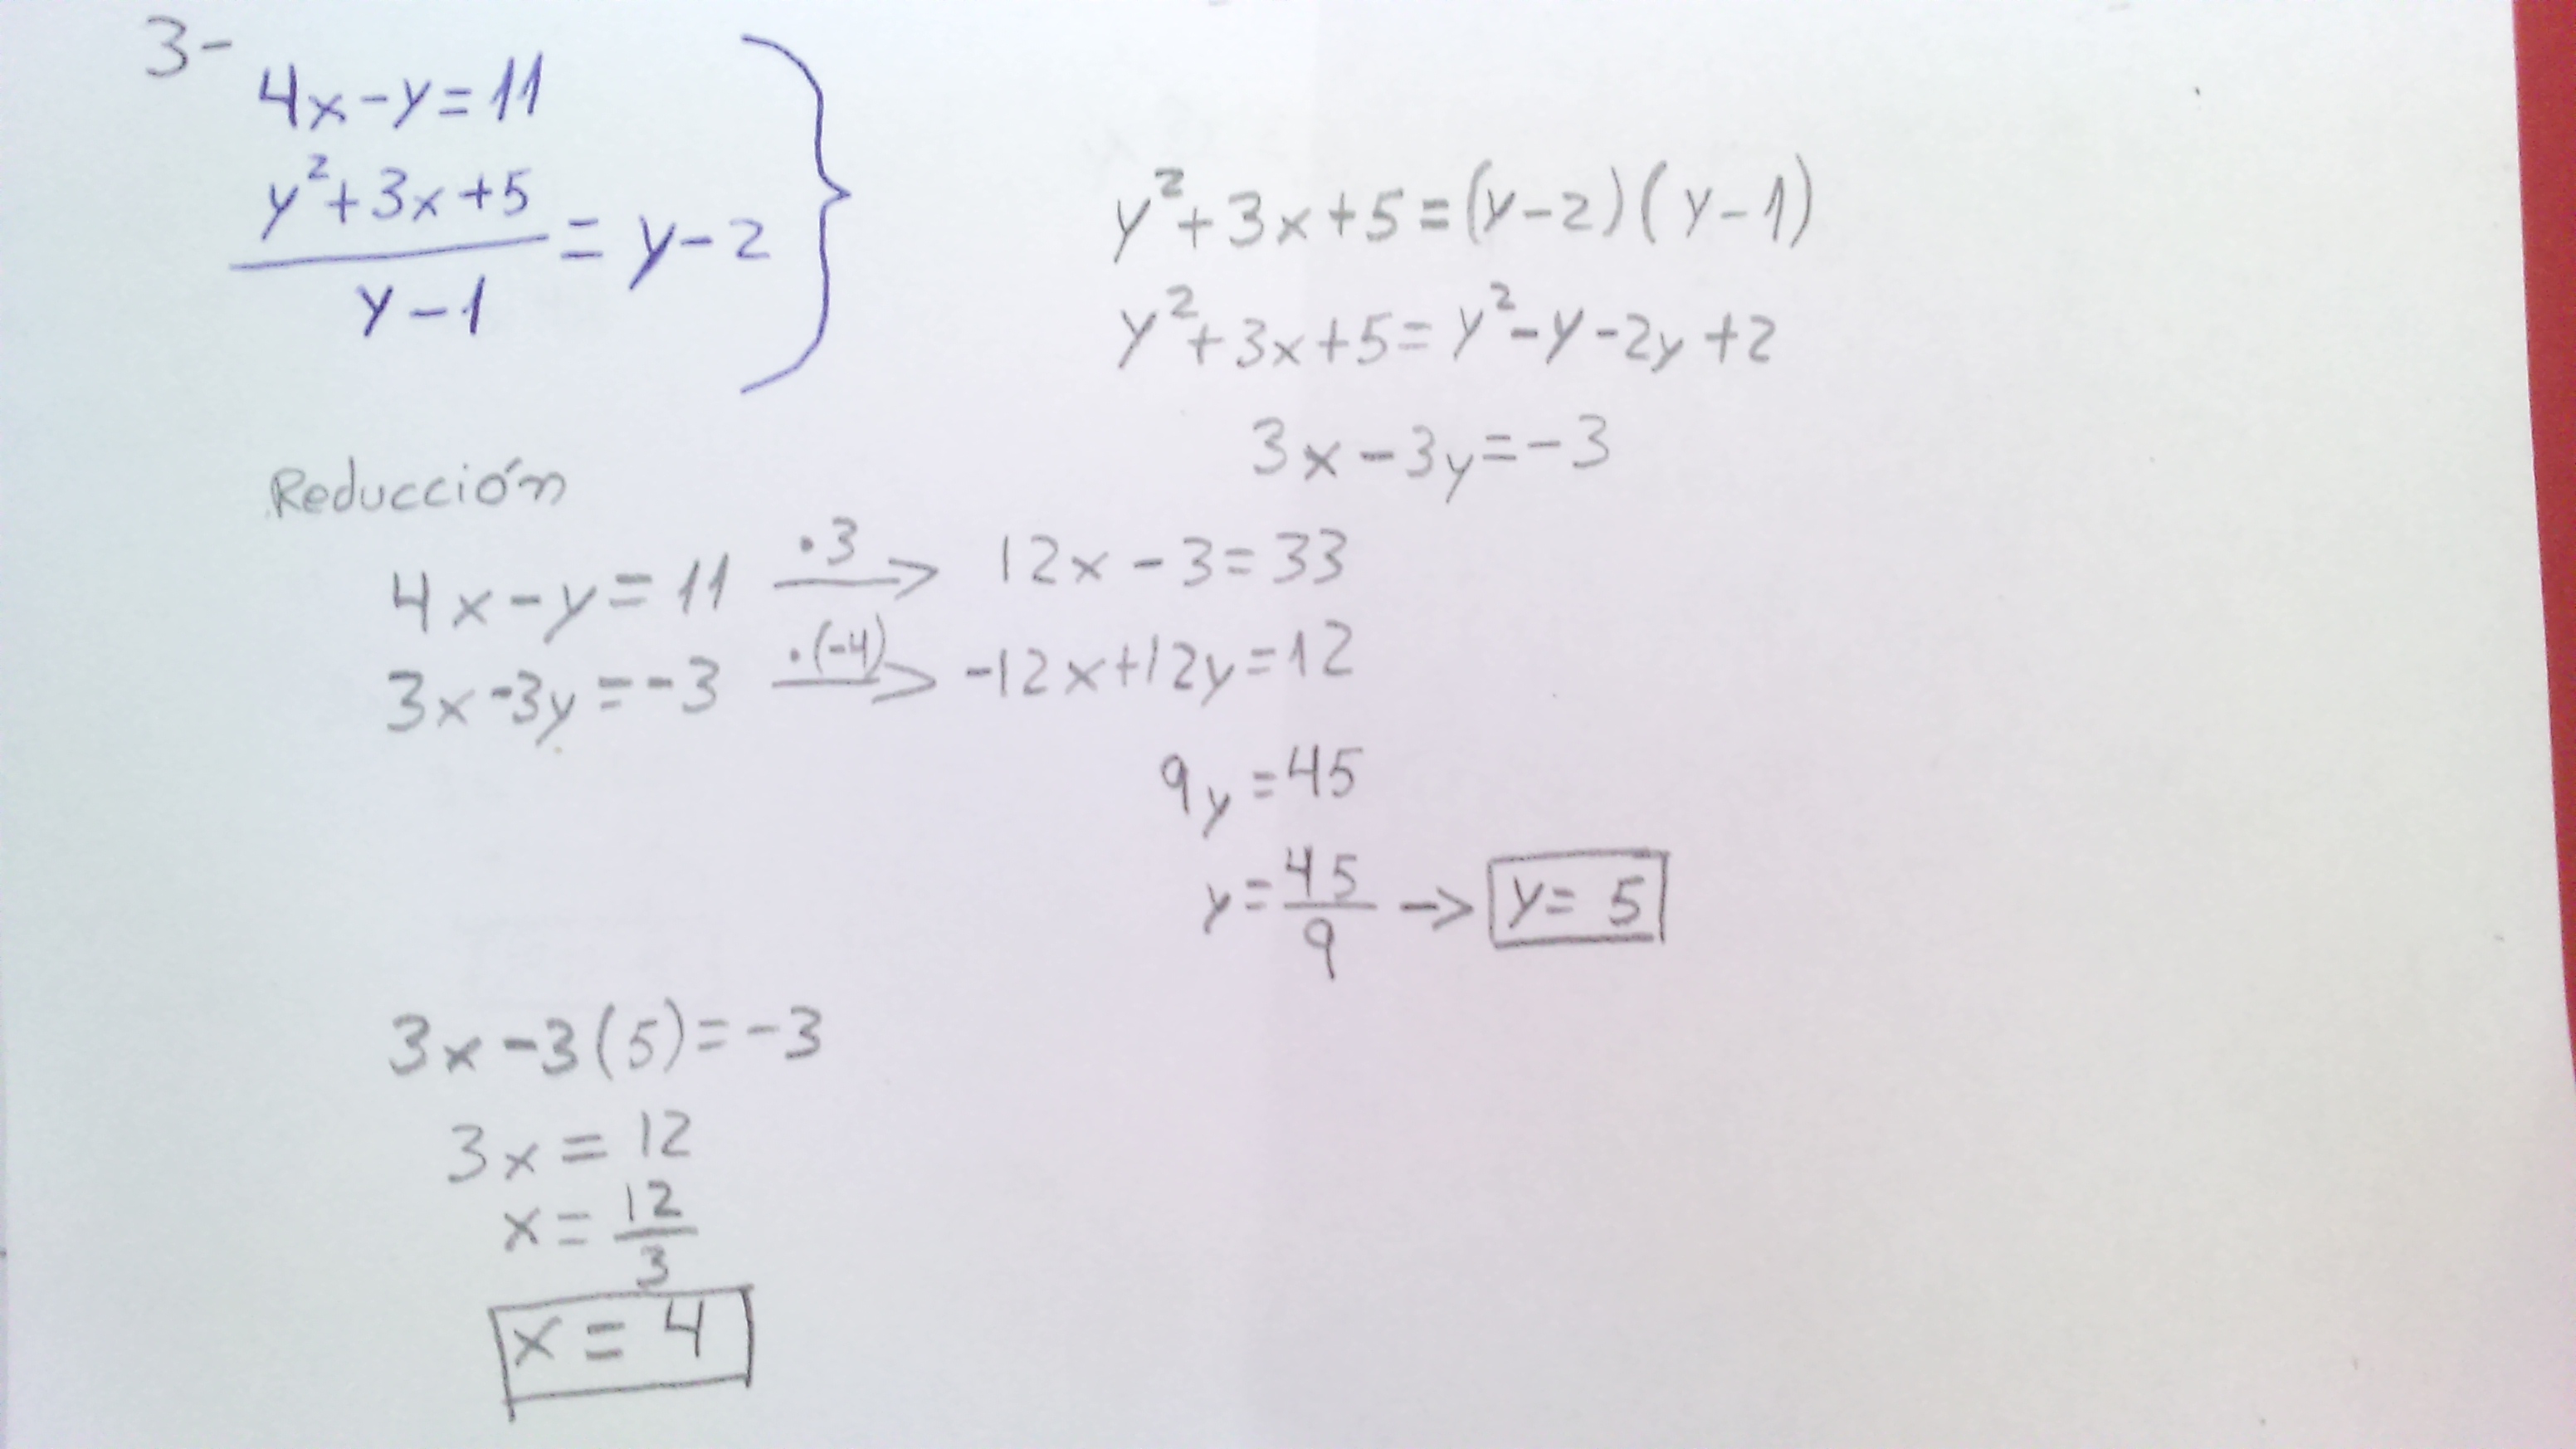 3-
4x-y=11
y²+3x+5
= y-2
y-1
y²+3x+5=(y-2)(y-1)
y²+3x+5=y²-y-2y+2
3x-3y=-3
Reducción
4x-y=11 ·3 → 12x-3=33
3x-3y=-3 ·(-4) → -12x+12y=12
9y=45
y=45/9 → y=5
3x-3(5)=-3
3x=12
x=12/3
x=4